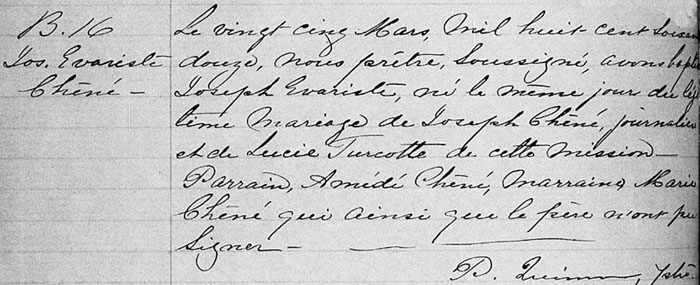 B. 16
Jos. Evariste
Chêné –
Le vingt cinq Mars, Mil huit-cent soixan
douze, nous prêtre, soussigné, avons bapti
Joseph Evariste, né le même jour du lég
time mariage de Joseph Chêné, journalier
et de Lucie Turcotte de cette mission –
Parrain, Amédé Chêné, Marraine, Marie
Chêné qui ainsi que le père n'ont pu
signer –
P. Quinn, ptr.